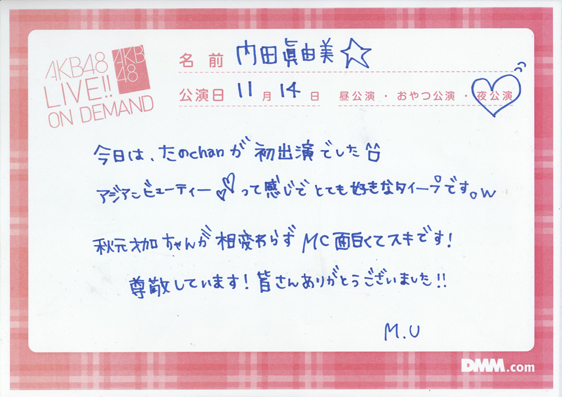 AKB48
LIVE!!
ON DEMAND
AKB
48
名前 内田眞由美☆
公演日 11月14日 昼公演・おやつ公演・夜公演
今日は、たのchanが初出演でした
アジアンビューティー♡♡って感じでとても好きなタイプです。w
秋元才加ちゃんが相変わらずMC面白くてスキです!
尊敬しています!皆さんありがとうございました!!
M.U
DMM.com